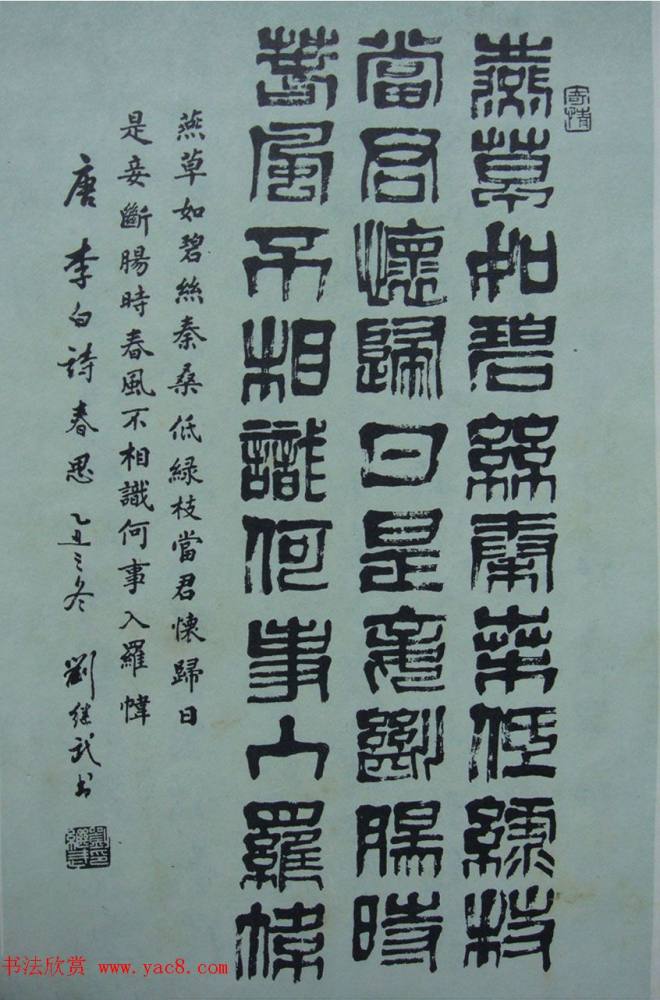 寄情
燕草如碧絲秦桑低綠枝
當君懷歸日是妾斷腸時
春風不相識何事入羅幃
燕草如碧絲秦桑低綠枝當君懷歸日
是妾斷腸時春風不相識何事入羅幃
唐李白詩春思乙丑之冬劉継武书
書法欣赏 www.yac8.com